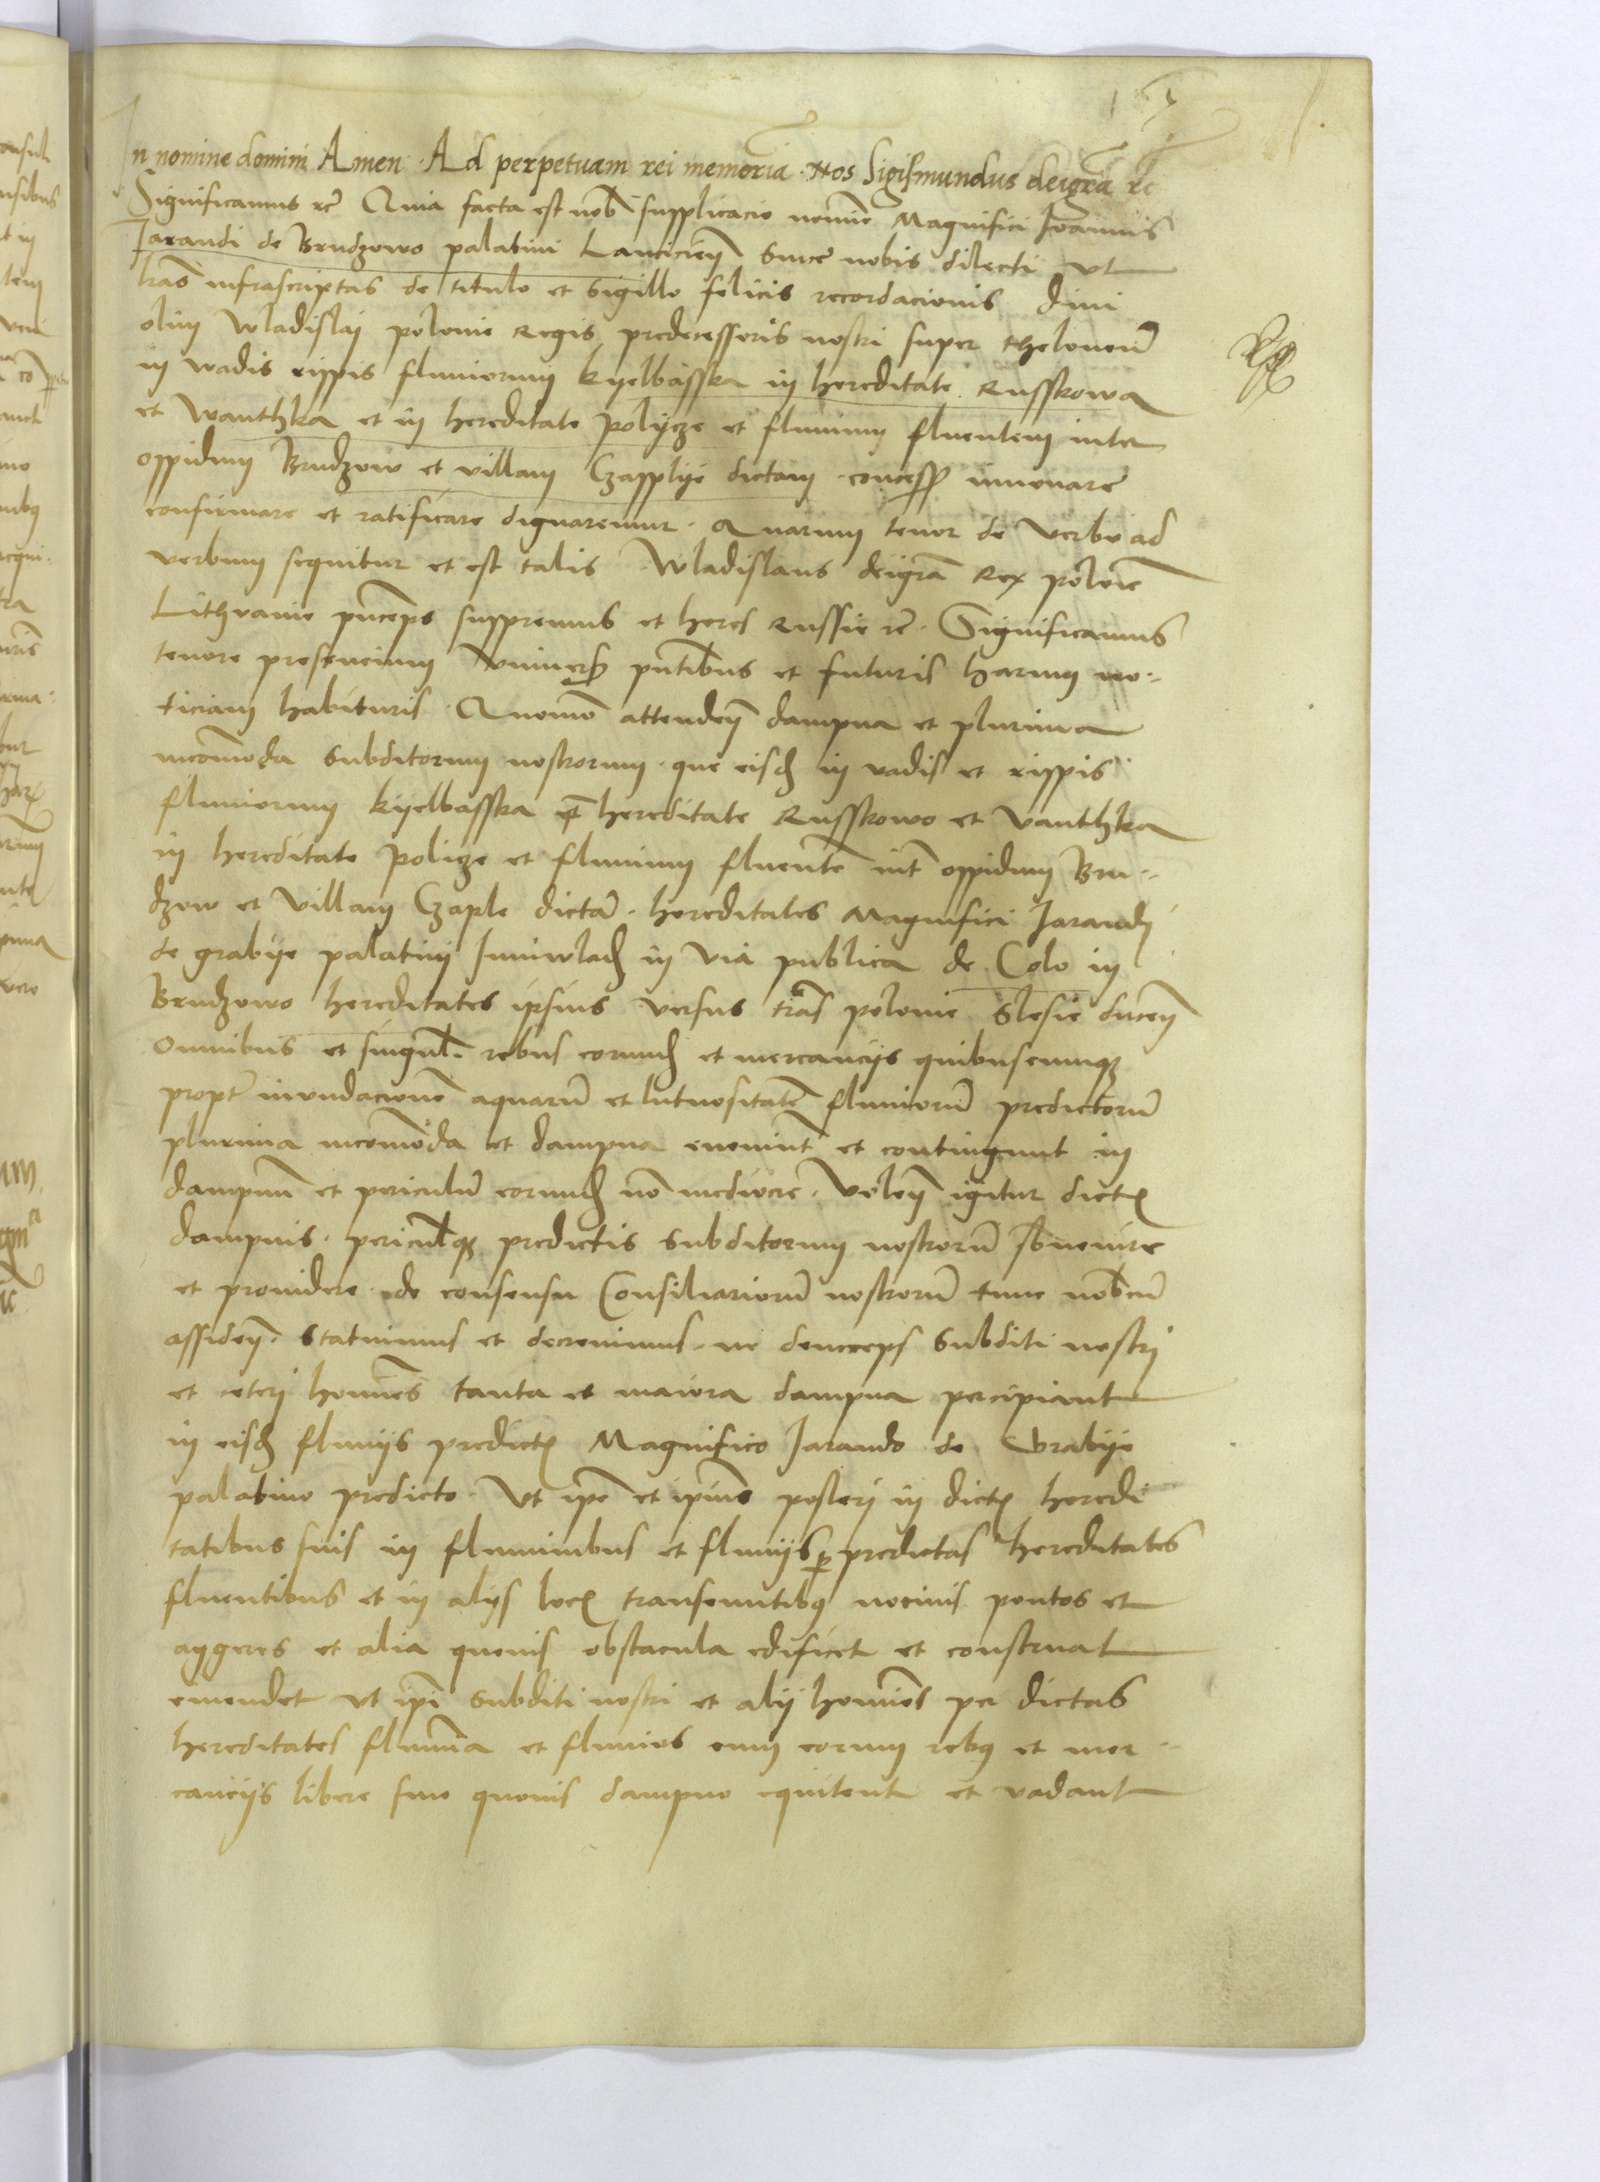 In nomine domini Amen. Ad perpetuam rei memoria. Nos Sigismundus deigra rc
Significamus rc Quia facta est nob supplicacio nomine Magnifici Ioannis
Jarandi de Brudzowo palatini Lancicien Sincere nobis dilecti ut
lras infrascriptas de titulo et sigillo felicis recordacionis divi
olim Wladislai polonie Regis predecessoris nostri super theloneu
in vadis rippis fluviorum kyelbasska in hereditate Russkowa
et Wanthka et in hereditate polycze et fluvium fluentem inter
oppidum Brudzow et villam Czapplye dictam concess innovare
confirmare et ratificare dignaremur. Quarum tenor de verbo ad
verbum sequitur et est talis Wladislaus deigra Rex polonie
Lithvanie princeps suppremus et heres Russie rc. Significamus
tenore presencium Universis pntibus et futuris harum no-
ticiam habituris. Quomo attenden dampna et plurima
incomoda subditorum nostrorum. que eisd in vadis et rippis
fluviorum kyelbasska et hereditate Russkowo et Vanthka
in hereditate police et fluvium fluente int oppidum Bru-
dzow et villam Czaple dicta. hereditates Magnifici Jarandi
de grabye palatini Juniwlad in via publica de Colo in
Brudzowo hereditates ipsius versus tras polonie Slesie ducen
omnibus et singul. rebus eorund et mercanciis quibuscumq
propt inundacione aquaru et lutuositate fluvioru predictoru
plurima incomoda et dampna eveniut et contingunt in
dampnu et periculu eorund no mediocre. Volen igitur dictis
dampnis. periculisq predictis subditorum nostroru sbvenire
et providere de consensu Consiliarioru nostroru tunc nobcu
assiden. Statuimus et decrevimus. ne deinceps subditi nostri
et ceteri homines tanta et maiora dampna percipiant
in eisd fluviis predictis Magnifico Jarando de Grabye
palatino predicto. Ut ipe et ipius posteri in dictis heredi
tatibus suis in fluminibus et fluviis p predictas hereditates
fluentibus et in aliis locis transeuntibus nocivis pontes et
aggeres et alia quevis obstacula edificet et construat
emendet ut ipi subditi nostri et alii homines per dictas
hereditates flumina et fluvios cum eorum rebus et mer-
canciis libere sine quovis dampno equitent et vadant